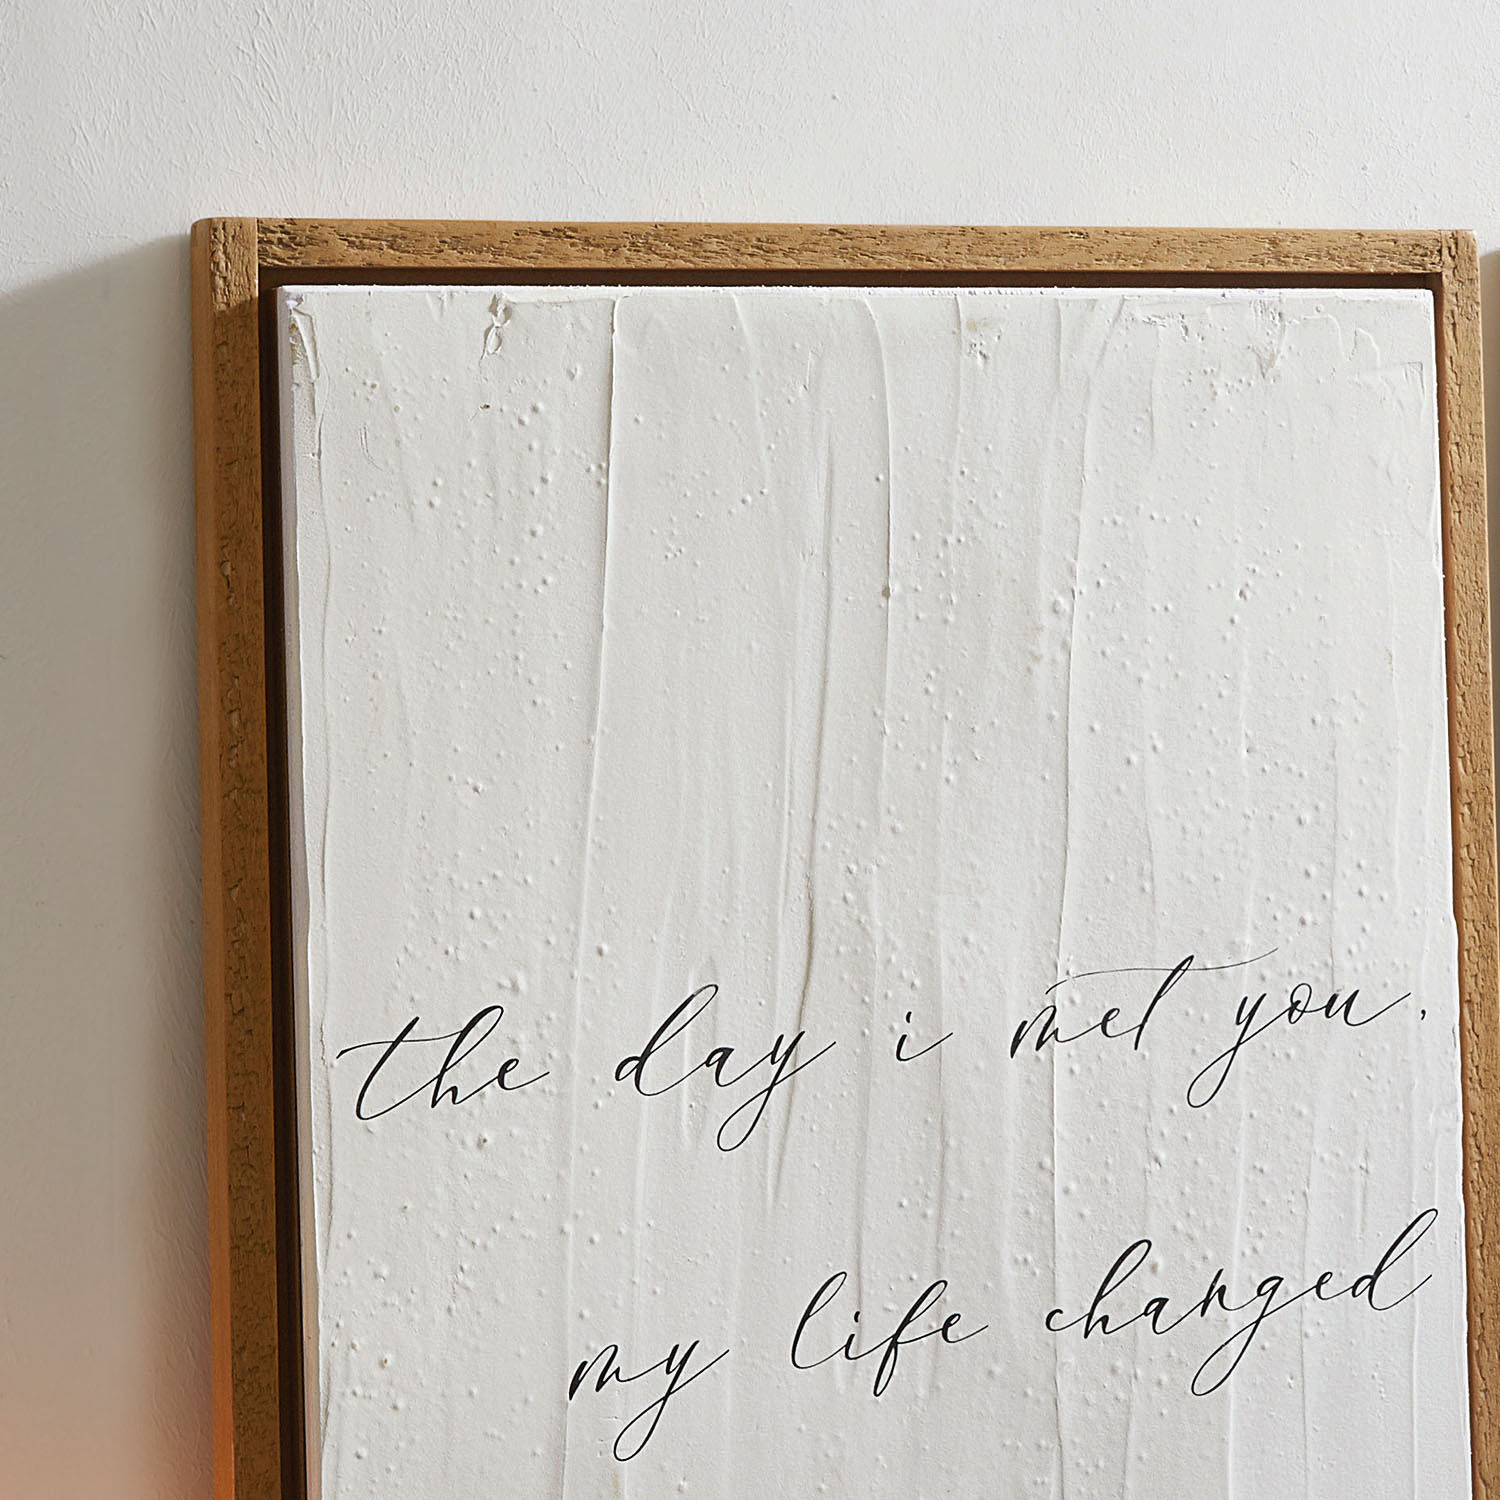 the day i met you,
my life changed